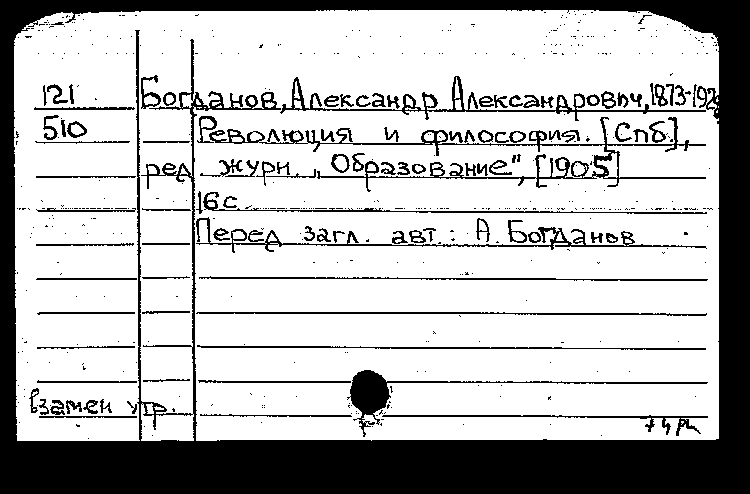 121 Богданов, Александр Александрович, 1873-1928
510 Революция и философия. [Спб],
ред. журн. „Образование", [1905]
16с
Перед загл. авт.: А. Богданов
Взамен утр.